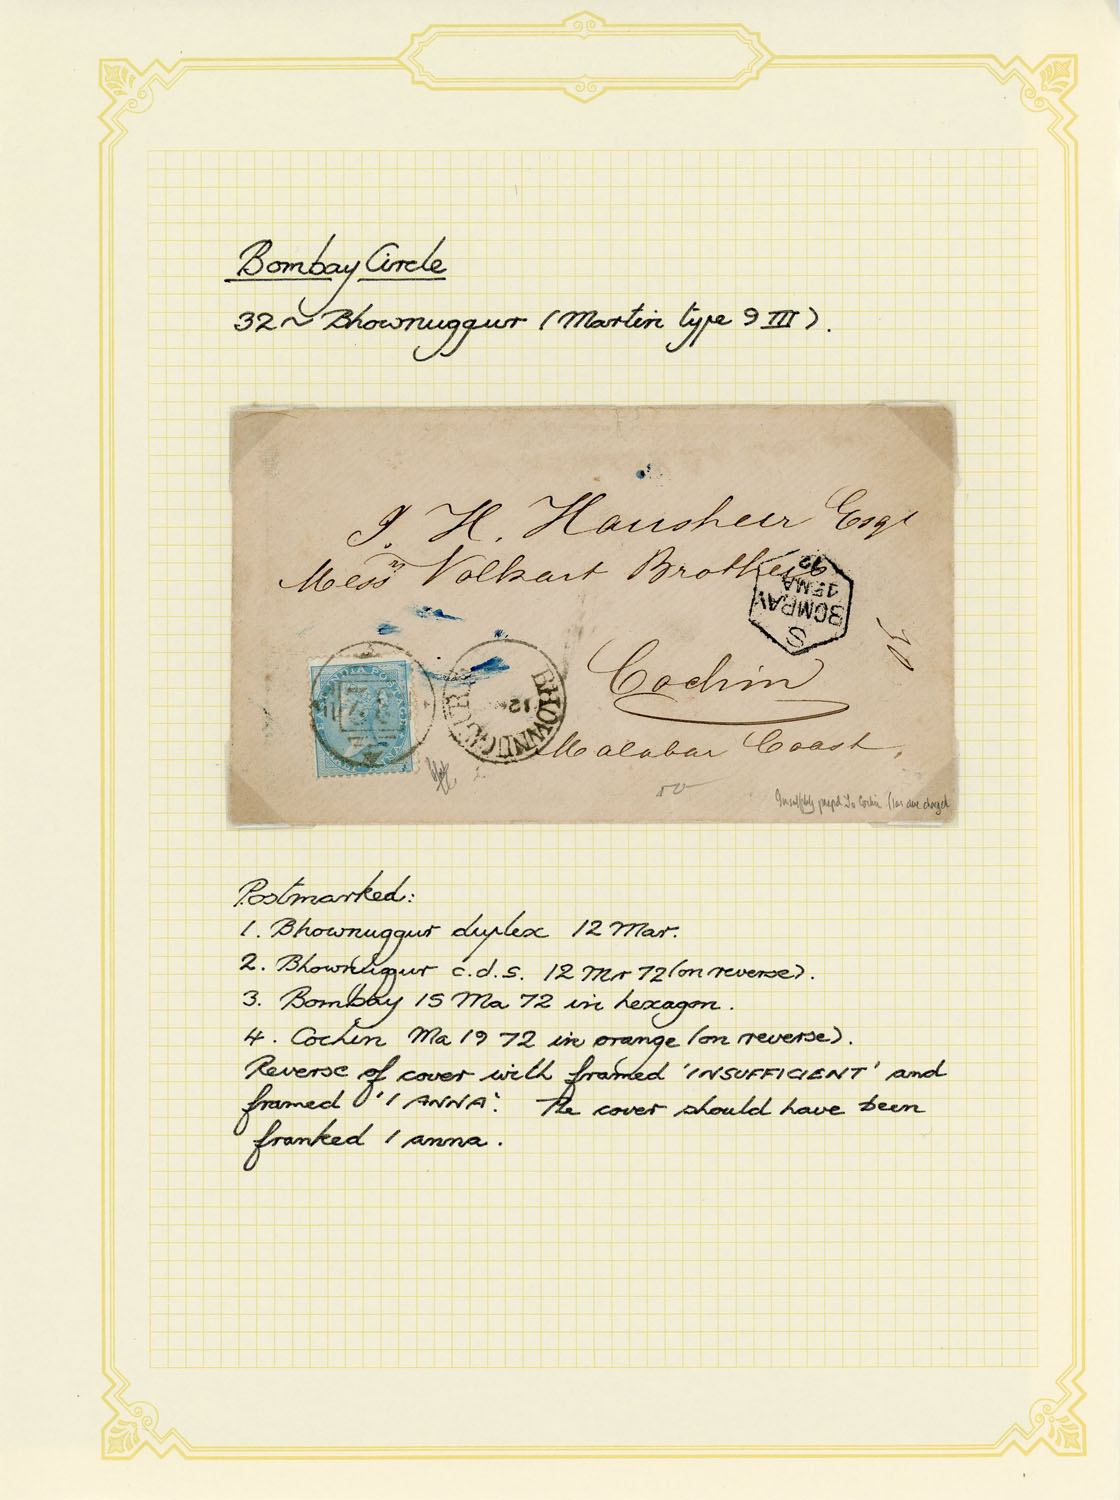 Bombay Circle
32 ~ Bhownuggur (Martin type 9 III).
J. H. Hausheer Esqr
Messrs Volkart Brothers
S
BOMBAY
15 MA
72
Cochin
Malabar Coast.
INDIA POSTAGE
32
BHOWNUGGUR
12
to Cochin (1an due charged
Postmarked:
1. Bhownuggur duplex 12 Mar.
2. Bhownuggur c.d.s. 12 Mr 72 (on reverse).
3. Bombay 15 Ma 72 in hexagon.
4. Cochin Ma 19 72 in orange (on reverse).
Reverse of cover with framed 'INSUFFICIENT' and
framed '1 ANNA'. The cover should have been
franked 1 anna.